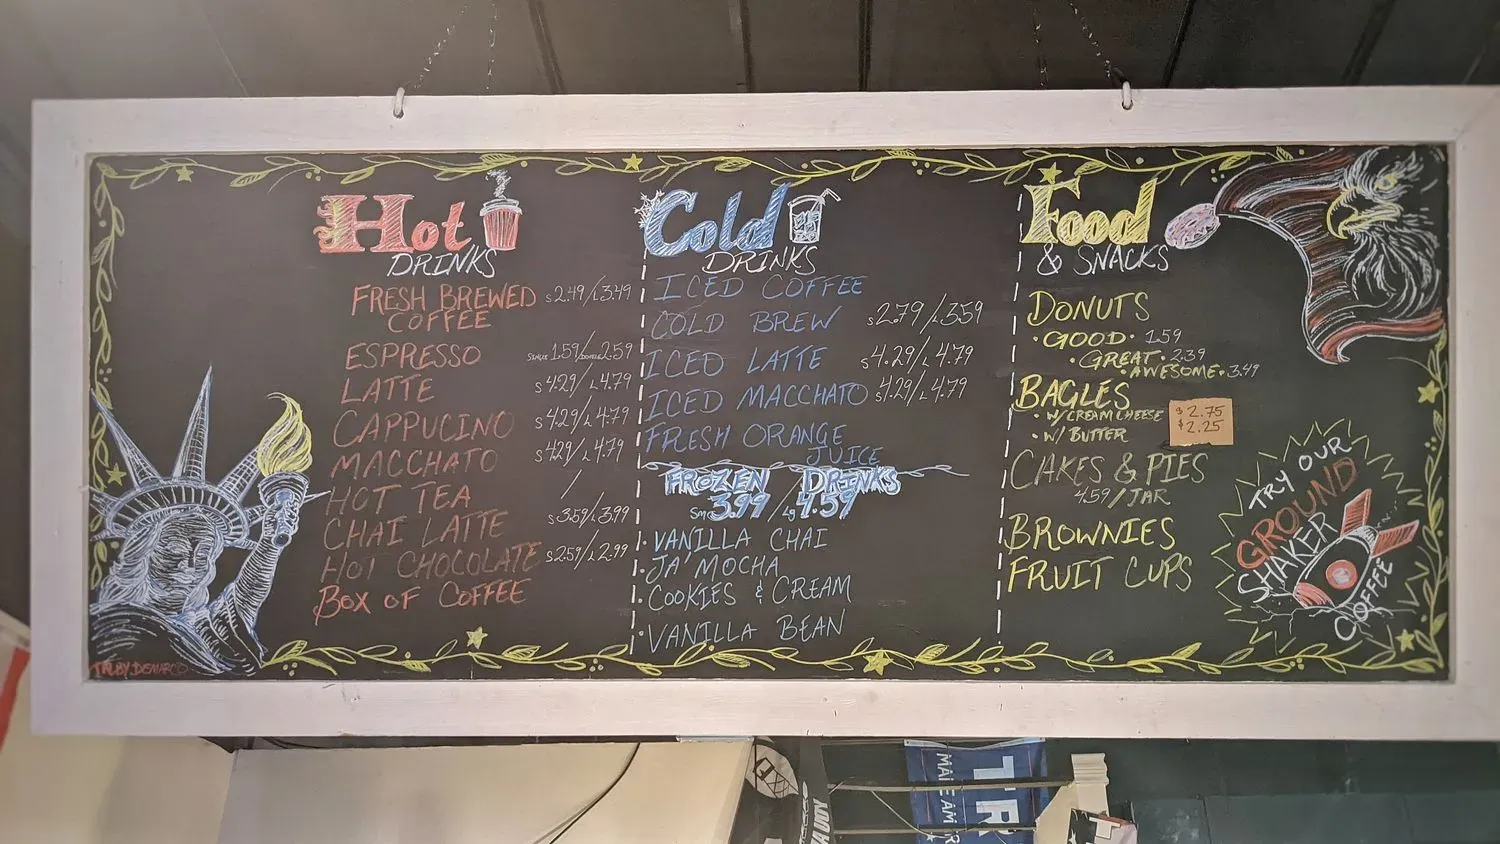 Hot
DRINKS
FRESH BREWED S 2.49/L 3.49
COFFEE
ESPRESSO SINGLE 1.59/DOUBLE 2.59
LATTE S 4.29/L 4.79
CAPPUCINO S 4.29/L 4.79
MACCHATO S 4.29/L 4.79
HOT TEA /
CHAI LATTE S 3.59/L 3.99
HOT CHOCOLATE S 2.59/L 2.99
BOX OF COFFEE
Cold
DRINKS
ICED COFFEE
COLD BREW S 2.79/L 3.59
ICED LATTE S 4.29/L 4.79
ICED MACCHATO S 4.29/L 4.79
FRESH ORANGE
JUICE
FROZEN DRINKS
Sm 3.99 / Lg 4.59
• VANILLA CHAI
• JA' MOCHA
• COOKIES & CREAM
• VANILLA BEAN
Food
& SNACKS
DONUTS
• GOOD • 1.59
• GREAT • 2.39
• AWESOME • 3.49
BAGLES
• W/CREAM CHEESE $2.75
• W/ BUTTER $2.25
CAKES & PIES
4.59/JAR
BROWNIES
FRUIT CUPS
TRY OUR
GROUND
SHAKER
COFFEE
TALBY DEMARCO